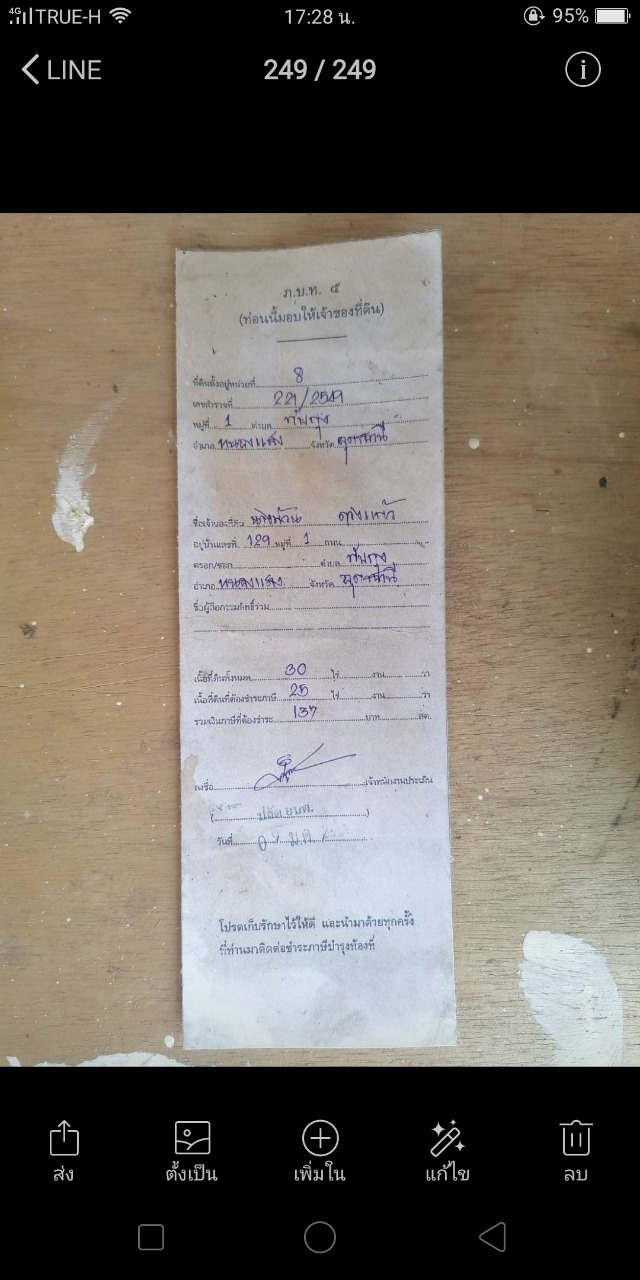 4G TRUE-H 17:28 น. 95%
LINE 249 / 249
ภ.บ.ท. ๕
(ท่อนนี้มอบให้เจ้าของที่ดิน)
ที่ดินตั้งอยู่หน่วยที่ 8
เลขสำรวจที่ 221/2549
หมู่ที่ 1 ตำบล ทับกุง
อำเภอ หนองแสง จังหวัด อุดรธานี
ชื่อเจ้าของที่ดิน
อยู่บ้านเลขที่ 129 หมู่ที่ 1 ถนน
ตรอก/ซอก ตำบล ทับกุง
อำเภอ หนองแสง จังหวัด อุดรธานี
ชื่อผู้ถือกรรมสิทธิ์ร่วม
เนื้อที่ดินทั้งหมด 30 ไร่ งาน วา
เนื้อที่ดินที่ต้องชำระภาษี 25 ไร่ งาน วา
รวมเงินภาษีที่ต้องชำระ 137 บาท สต.
ลงชื่อ เจ้าพนักงานประเมิน
( ปลัด อบต. )
วันที่ ม.ค.
โปรดเก็บรักษาไว้ให้ดี และนำมาด้วยทุกครั้ง
ที่ท่านมาติดต่อชำระภาษีบำรุงท้องที่
ส่ง ตั้งเป็น เพิ่มใน แก้ไข ลบ